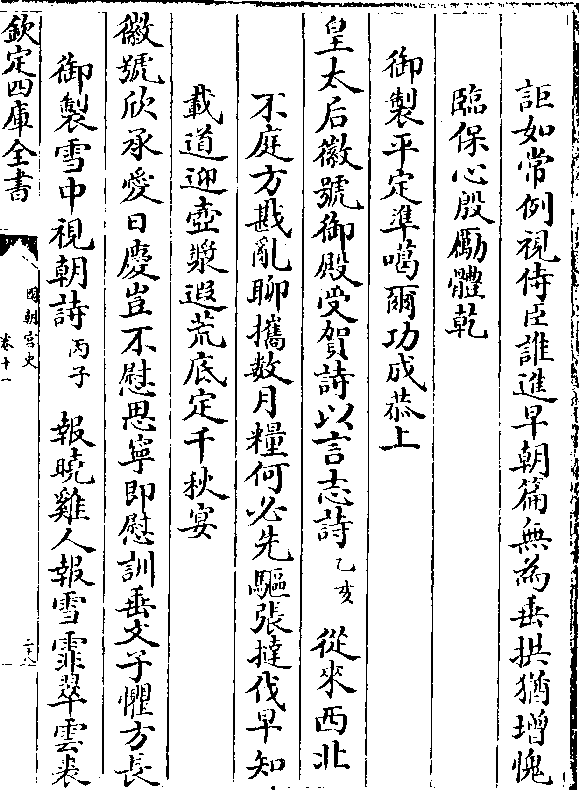 詎如常例視侍臣誰進早朝篇無為垂拱猶增愧
臨保心殷勵體乾
御製平定準噶爾功成恭上
皇太后徽號御殿受賀詩以言志詩乙亥 從來西北
不庭方戡亂聊攜数月糧何必先驅張撻伐早知
載道迎壺漿遐荒底定千秋宴
徽號欣承愛日慶豈不慰思寧即慰訓垂文子懼方長
御製雪中視朝詩丙子 報曉雞人報雪霏翠雲裘
欽定四庫全書
國朝宮史
卷十一
二十八